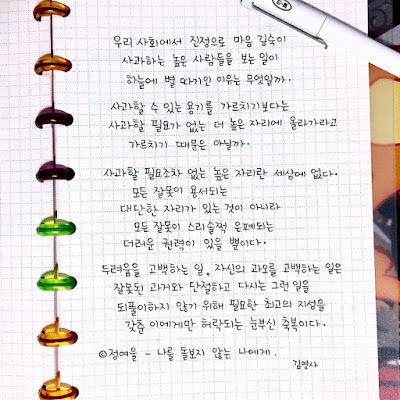 우리 사회에서 진정으로 마음 깊숙이
사과하는 높은 사람들을 보는 일이
하늘에 별 따기인 이유는 무엇일까.
사과할 수 있는 용기를 가르치기보다는
사과할 필요가 없는 더 높은 자리에 올라가라고
가르치기 때문은 아닐까.
사과할 필요조차 없는 높은 자리란 세상에 없다.
모든 잘못이 용서되는
대단한 자리가 있는 것이 아니라
모든 잘못이 스리슬쩍 은폐되는
더러운 권력이 있을 뿐이다.
두려움을 고백하는 일, 자신의 과오를 고백하는 일은
잘못된 과거와 단절하고 다시는 그런 일을
되풀이하지 않기 위해 필요한 최고의 지성을
갖춘 이에게만 허락되는 눈부신 축복이다.
©정여울 - 나를 돌보지 않는 나에게.
김영사